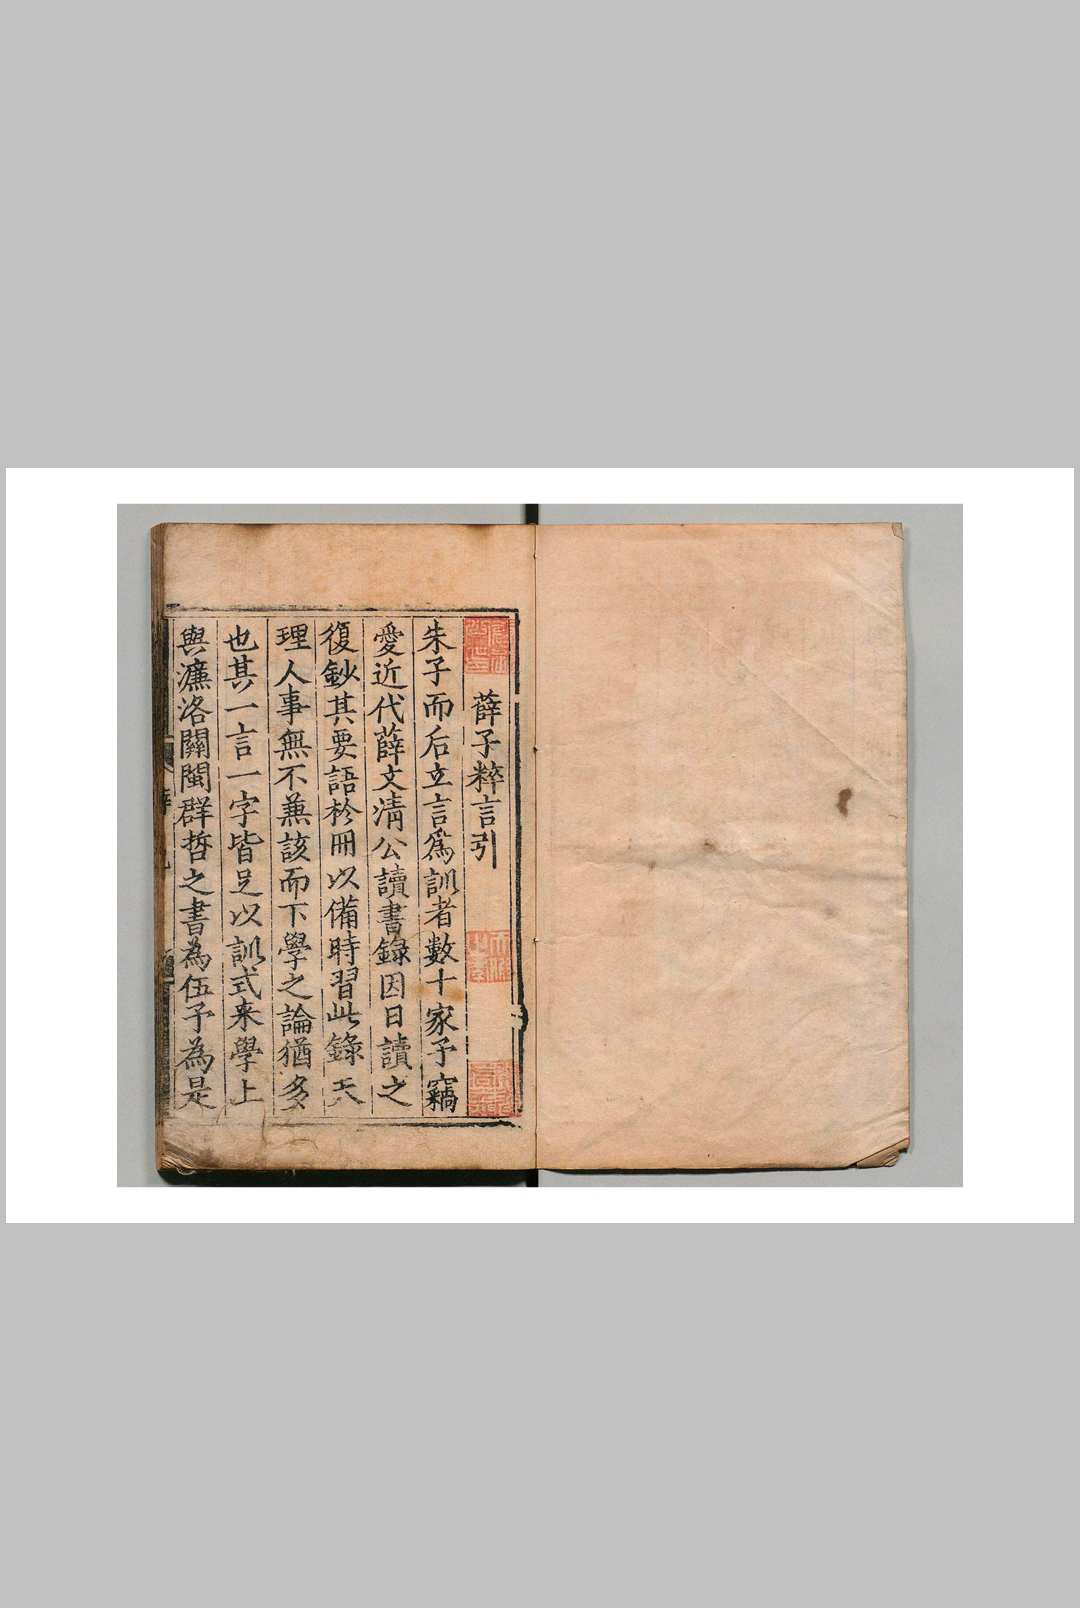 薛子粹言引
朱子而后立言爲訓者數十家予竊
愛近代薛文淸公讀書錄因日讀之
復鈔其要語於冊以備時習此錄天
理人事無不兼該而下學之論猶多
也其一言一字皆足以訓式来學上
與濂洛關閩群哲之書為伍予為是